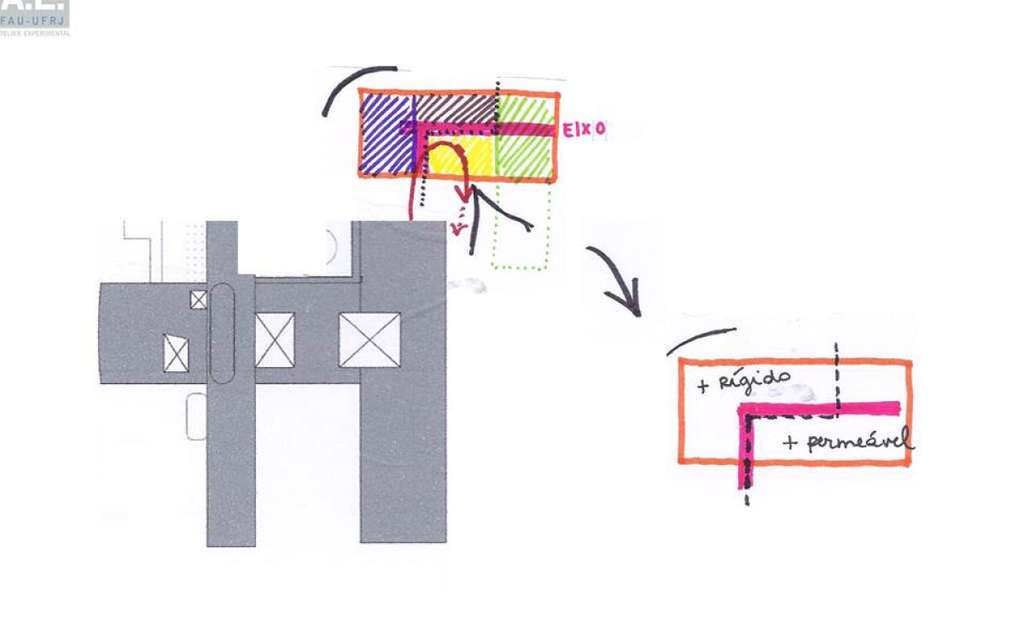 A.E.
FAU-UFRJ
ATELIER EXPERIMENTAL
EIXO
+ Rígido
+ permeável